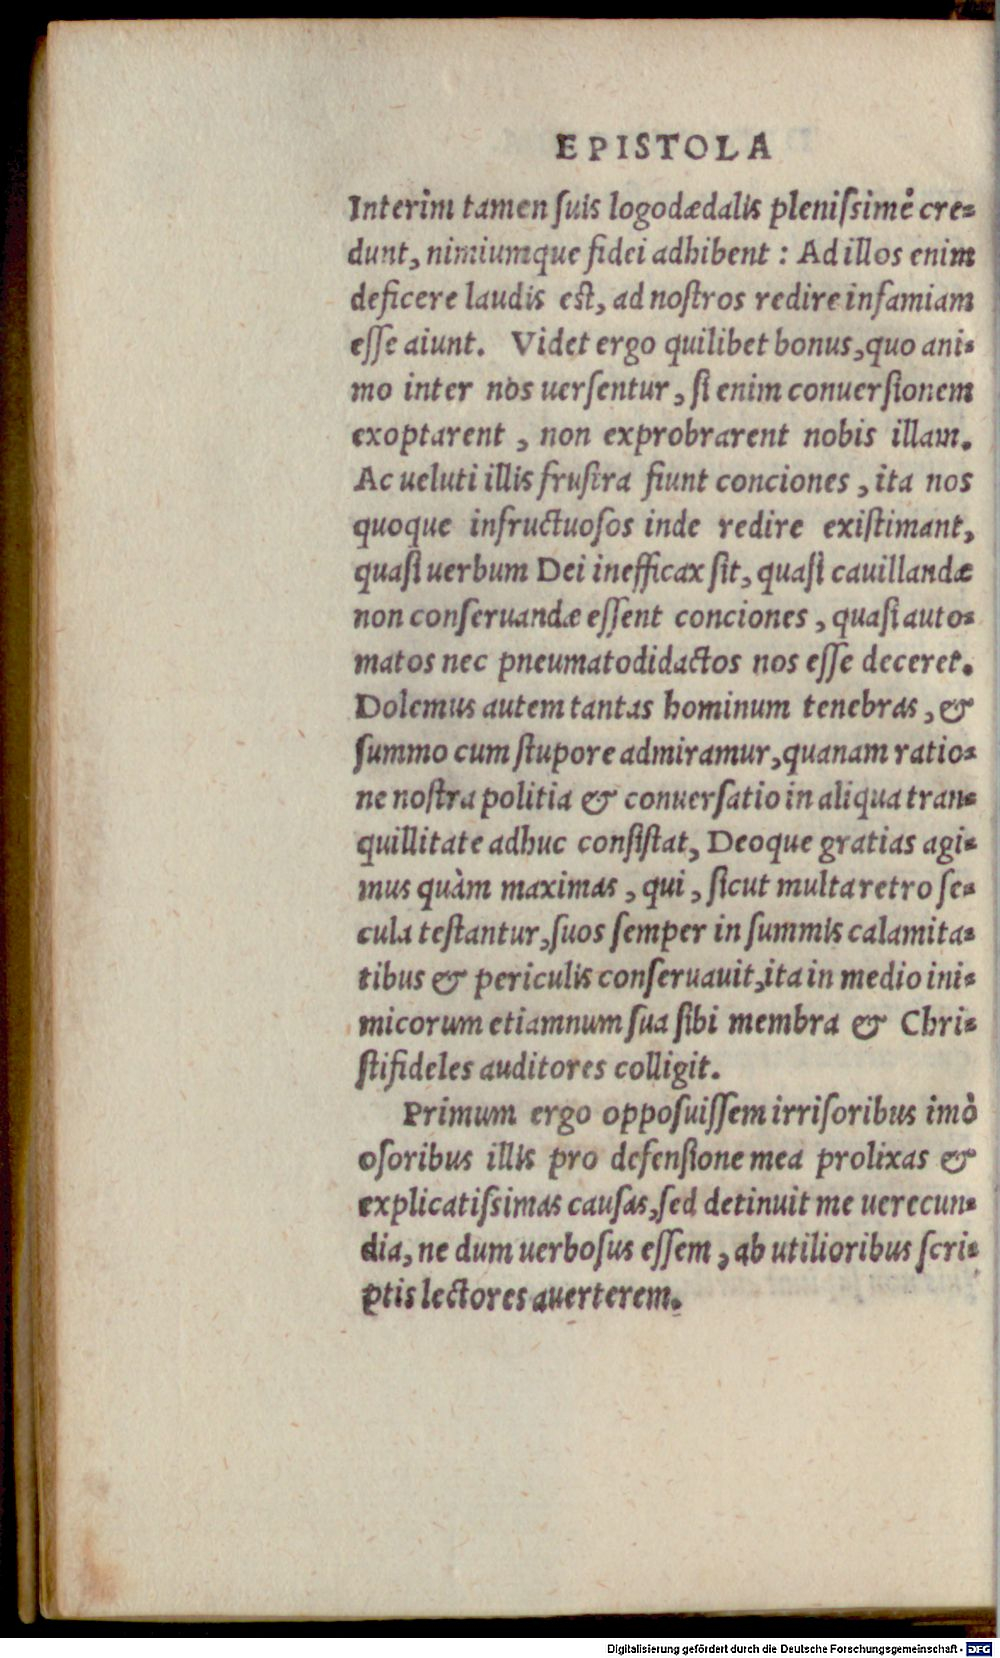 EPISTOLA
Interim tamen ſuis logodædalis pleniſsimè cre=
dunt, nimiumque fidei adhibent : Ad illos enim
deficere laudis est, ad noſtros redire infamiam
eſſe aiunt. Videt ergo quilibet bonus, quo ani=
mo inter nos uerſentur, ſi enim conuerſionem
exoptarent, non exprobrarent nobis illam.
Ac ueluti illis fruſtra fiunt conciones, ita nos
quoque infructuoſos inde redire exiſtimant,
quaſi uerbum Dei inefficax ſit, quaſi cauillandæ
non conſeruandæ eſſent conciones, quaſi auto=
matos nec pneumatodidactos nos eſſe deceret.
Dolemus autem tantas hominum tenebras, &
ſummo cum ſtupore admiramur, quanam ratio=
ne noſtra politia & conuerſatio in aliqua tran=
quillitate adhuc conſiſtat, Deoque gratias agi=
mus quàm maximas, qui, ſicut multa retro ſe=
cula teſtantur, ſuos ſemper in ſummis calamita=
tibus & periculis conſeruauit, ita in medio ini=
micorum etiamnum ſua ſibi membra & Chri=
ſtifideles auditores colligit.
Primum ergo oppoſuiſſem irriſoribus imò
oſoribus illis pro defenſione mea prolixas &
explicatiſsimas cauſas, ſed detinuit me uerecun=
dia, ne dum uerboſus eſſem, ab utilioribus ſcri=
ptis lectores auerterem.
Digitalisierung gefördert durch die Deutsche Forschungsgemeinschaft - DFG